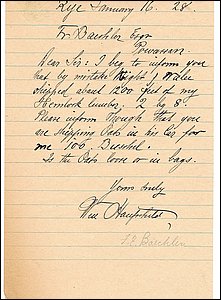 Rye January 16. 28.
Fr Baechler Esqr
Powassan
Dear Sir: I beg to inform you
that by mistake Knight's Walter
shipped about 1200 feet of my
Hemlock lumber. 2 by 8.
Please inform Keough that you
are shipping Oats in his Car for
me 100 Bushel.
Is the Oats loose or in bags.
Yours Truly
Wm